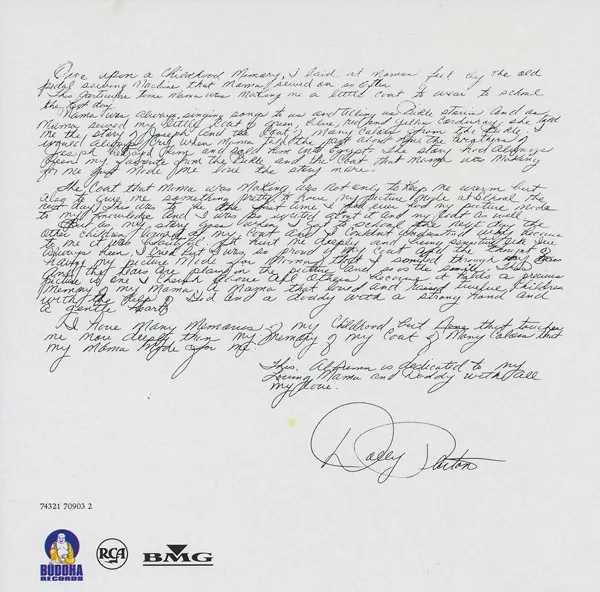 Once upon a Childhood Memory, I laid at Mamas feet by the old
pedal sewing Machine that Mama sewed on so often
This particular time Mama was Making me a little Coat to wear to school
the next day.
Mama was always singing songs to us and telling us Bible stories And as
Mama sewed my little Coat of green, blue, and yellow Corduroy, she told
me the story of Joseph and the Coat of Many Colors from the Bible. I
would always Cry when Mama told the part about how the brothers of
Joseph and sold him into Egypt. The story had Always
been my favorite from the Bible and the Coat that Mama was Making
for me Just Made Me love the story more.
The Coat that Mama was Making was not only to Keep me warm but
also to give me something pretty to have my picture Made at School the
next day. This was to be the first time I had ever had my picture Made
to my Knowledge And I was so excited about it and my Coat as well.
But as my story goes when I got to school the next day the
other children laughed at my Coat and I Couldn't understand why because
to me it was beautiful. It hurt me deeply and being sensitive like I've
always been, I cried but I was so proud of my Coat and the thought of
having my picture Made for Mama that I smiled through my tears
And the tears are plain in the picture and so is the smile. This
picture is one I cherish above all others because it holds a precious
Memory of my Mama, a Mama that loved and raised twelve Children
with the help of God and a daddy with a strong Hand and
a gentle heart.
I have Many Memories of my Childhood but None that touches
me more deeply than my Memory of my Coat of Many Colors that
my Mama Made for me.
This Album is dedicated to my
Loving Mama and Daddy with all
my love.
Dolly Parton
74321 70903 2
BUDDHA
RECORDS
RCA
BMG